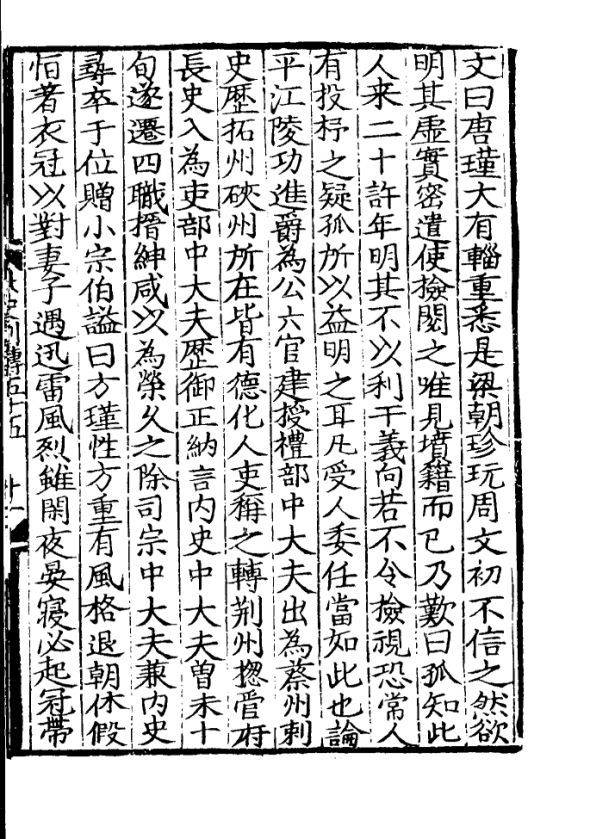 文曰唐瑾大有輜重悉是梁朝珍玩周文初不信之然欲
明其虛實密遣使檢閱之唯見墳籍而已乃歎曰孤知此
人来二十許年明其不以利干義向若不令檢視恐常人
有投杼之疑孤所以益明之耳凡受人委任當如此也論
平江陵功進爵為公六官建授禮部中大夫出為蔡州刺
史歷拓州硤州所在皆有德化人吏稱之轉荆州揔管府
長史入為吏部中大夫歷御正納言内史中大夫曽未十
旬遂遷四職搢紳咸以為榮久之除司宗中大夫兼内史
尋卒于位贈小宗伯謚曰方瑾性方重有風格退朝休假
恒著衣冠以對妻子遇迅雷風烈雖閑夜晏寢必起冠帶
列傳五十五